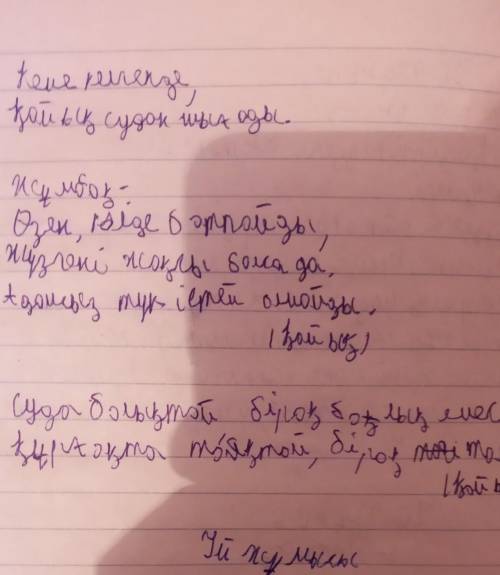 Кеме келгенде,
Қайық судан шығады.
Жұмбақ-
Өзен, көлде батпайды,
Жүзгені жақсы болса да,
Адамсыз түк істей алмайды.
(қайық)
Суда балықтай бірақ балық емес
Құрлақта таяқтай, бірақ та
(қай
Үй жұмысы